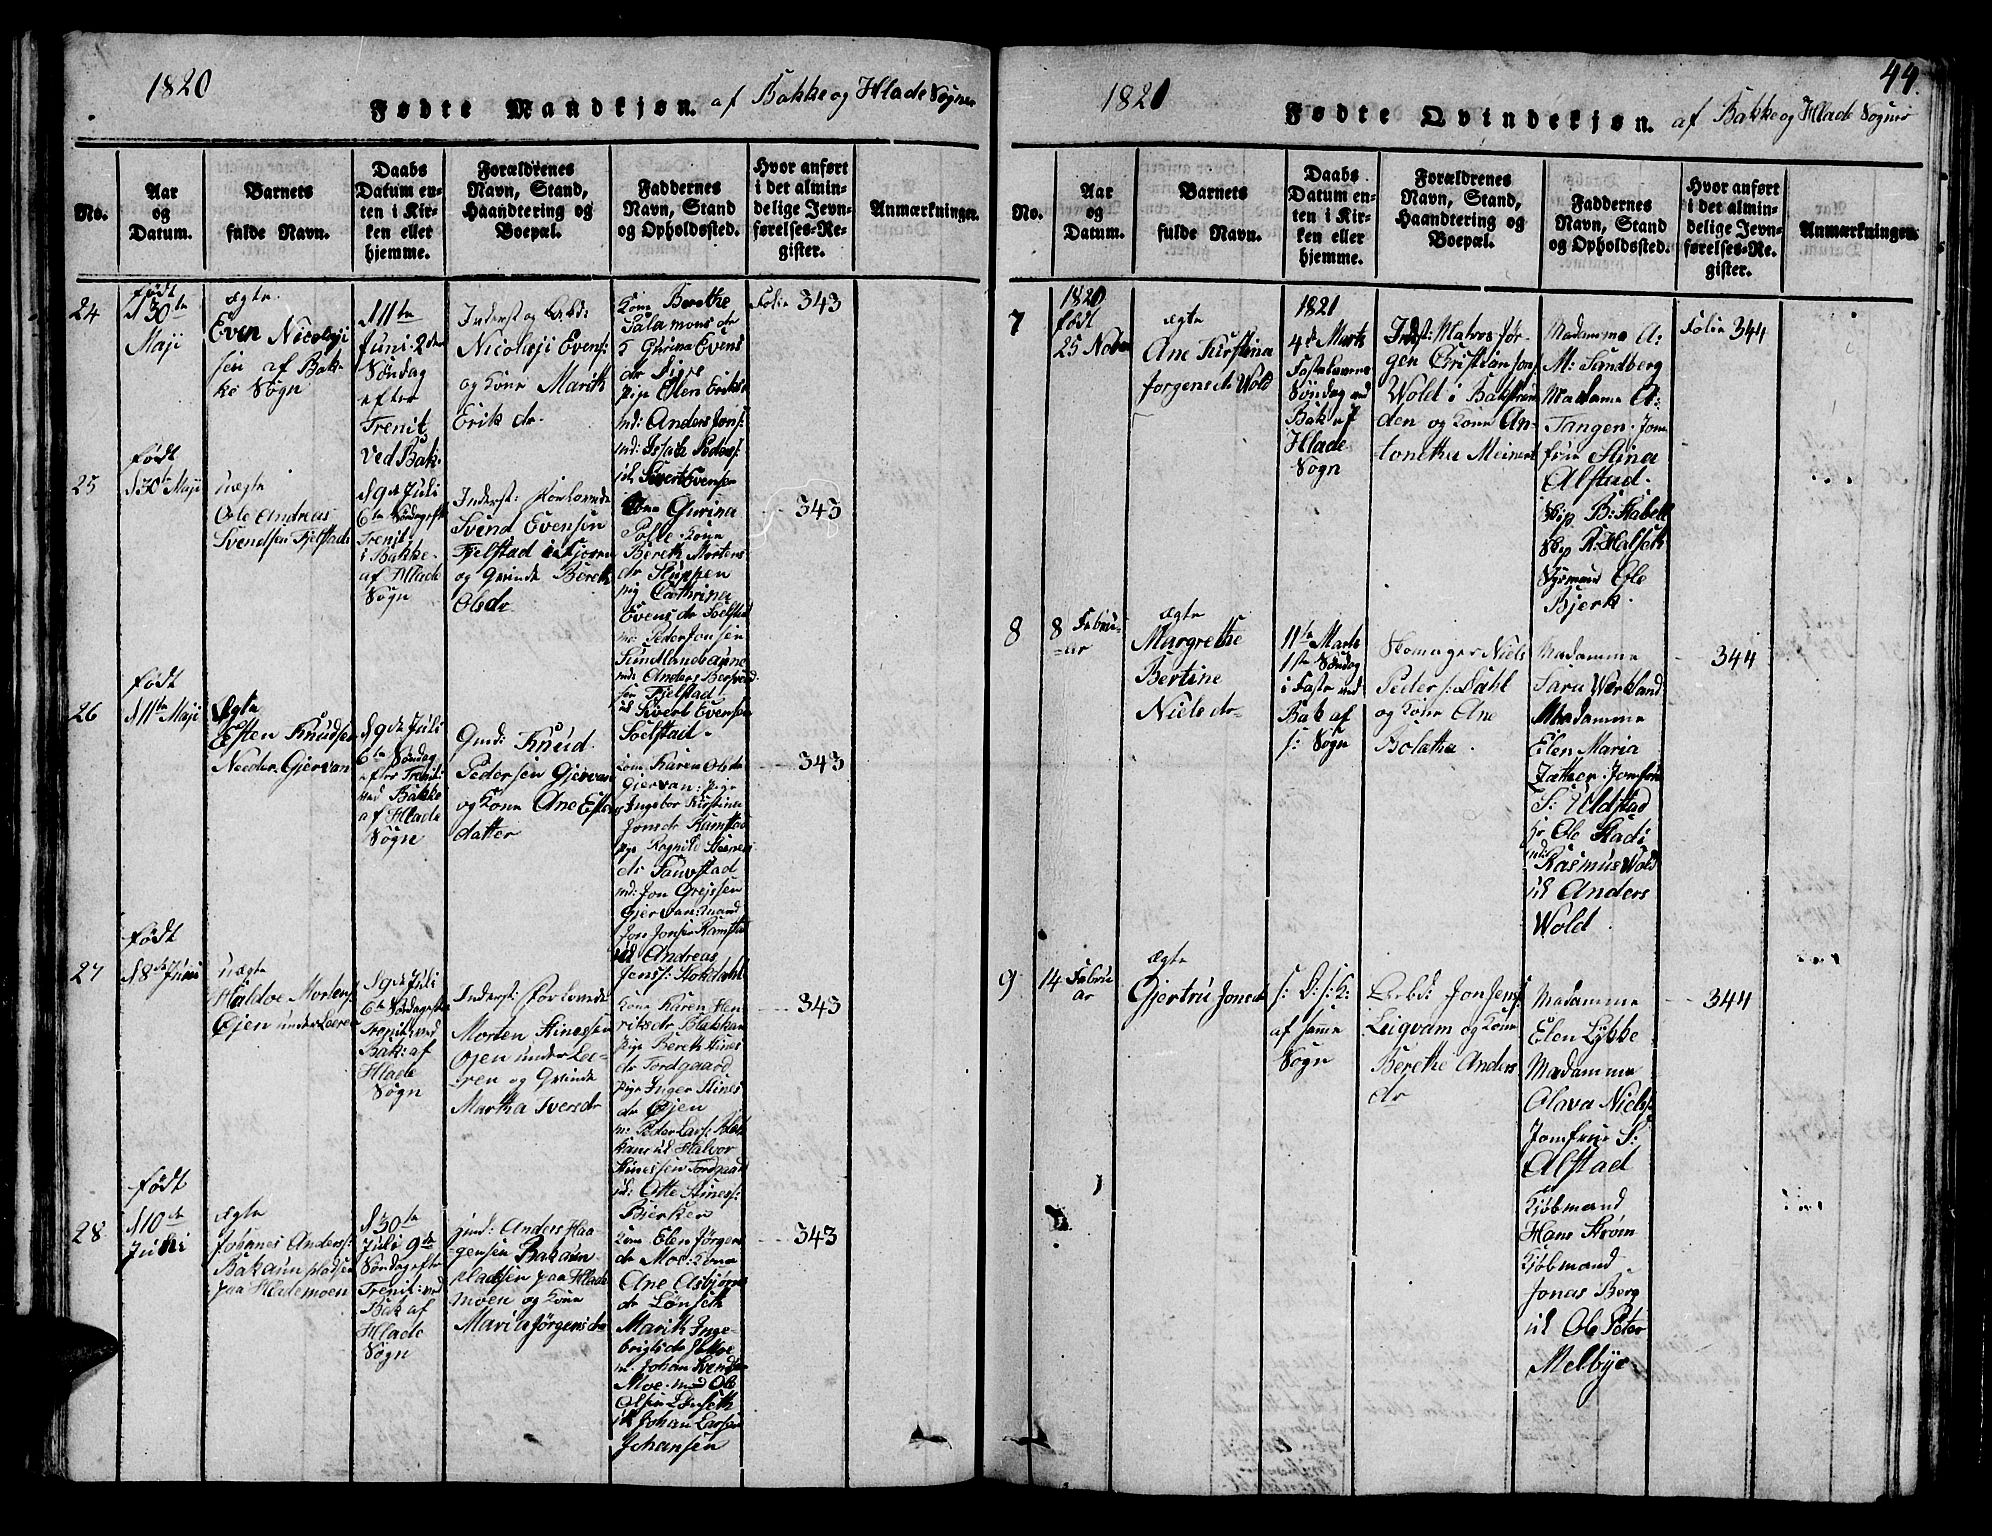 1820
Fødte Mandkjøn. af Bakke og Hlade Sogner
No.
Aar
og
Datum.
Barnets
fulde Navn.
Daabs
Datum en-
ten i Kir-
ken eller
hjemme.
Forældrenes
Navn, Stand,
Haandtering og
Boepæl.
Faddernes
Navn, Stand
og Opholdssted.
Hvor anført
i det almin-
delige Jevn-
førelses-Re-
gister.
Anmærkninger.
24
født
d 30te
Maji
ægte
Even Nicolaji
sen af Bak-
ke Sogn
d 11te
Juni 2den
Søndag
efter
Trenit
ved Bak:
Inderst og
Nicolaji Evens:
og Kone Marith
Erik dr.
Kone Berethe
Salamons dr
Evens
dr
Pige Elen Eriks
md: Anders Jons:
md: Peders:
uk Sivert Evensen
Folio 343
25
født
d 30te Maji
uægte
Ole Andreas
Svendsen Fjelstad
d 9de Juli
6te Søndag efter
Trenit
i Bakke
af Hlade
Sogn
Inderst: Forlovede
Svend Evensen
Fjelstad i
og Qvinde Bereth
Olsdr
Kone Gurina
Kone
Bereth Mortens
dr Stuppen
pig Cathrina
Evens dr Soelstad
m: Peder Jonsen
Sundlandaune
md: Anders
sen Fjelstad
uk Sivert Evensen
Soelstad.
343
26
født
d 11te Maji
Ægte
Esten Knudsen
Neder Gjervan
d 9de Juli
6te Søndag
efter Trenit:
ved Bakke
af Hlade
Sogn
Gmd: Knud
Pedersen Gjervan
og Kone Ane Esten
datter
Kone Karen Ols dr
Gjervan: Pige
Ingebor Kirstina
Jonsdr Ramstad
Pige Ragnild
dr
md: Jon Grejssen
Gjervan: mand
Jon Jonsen Ramstad
uk Andreas
Jenss: Stokdahl
343
27
født
d 8de Juni
uægte
Haldoe Mortens:
Øjen under Leeren
d 9de Juli
6te Søndag efter
Trenit: ved
Bak: af
Hlade
Sogn
Inderst: Forlovede
Morten Hinessen
Øjen under Lee-
ren og Qvinde
Martha Iversdr
Kone Karen Hen
riks dr Blakkan
Pige Bereth Hines
dr Tordgaard
Pige Inger Hines
dr Øjen
m: Peder Lars: Blak
kan uk Halvor
Hinessen Tordgaard
uk: Otte Hiness:
Bierken
343
28
født
d 10de
Juni
ægte
Johanes Anders:
Bakaunpladsen
paa Hlademoen
d 30te
Juli 9de
Søndag efter
Trenit: ved
Bak af
Hlade
Sogn
Jnd: Anders Haa-
gensen Bakaun-
pladsen paa Hlade
moen og Kone
Maria Jørgens dr
Kone Elen Jørgens
dr Moe: Kone
Ane Asbjørns
dr Lønseth
Marith Inge-
brigts dr Moe
m: Johan Svends
Moe. md Ole
Olsen Lønseth
uk Johan Larsen
Johansen
343
44
1821
Fødte Qvindekjøn. af Bakke og Hlade Sogner
No.
Aar
og
Datum.
Barnets
fulde Navn.
Daabs
Datum en-
ten i Kir-
ken eller
hjemme.
Forældrenes
Navn, Stand,
Haandtering og
Boepæl.
Faddernes
Navn, Stand
og Opholdssted.
Hvor anført
i det almin-
delige Jevn-
førelses-Re-
gister.
Anmærkninger.
7
1820
født
25 Novbr
ægte
Ane Kirstina
Jørgens dr Wold
1821
4de Marts
Fastelavns
Søndag ved
Bak af
Hlade
Sogn
Indst: Matros Jør-
gen Christian Jons
Wold i Bakstran
den og Kone An-
tonetha Meinert
Madamme A:
M: Sundberg
Madame A:
Tangen. Jom
frue Stina
Alstad.
Skip B: Kabell
Skip R: Halseth
Sysmand Ole
Bjerk.
Folio 344
8
8 Febru-
ar
ægte
Margrethe
Bertine
Niels dr
11te Marts
1ste Søndag
i Faste ved
Bak af
s: Sogn
Skomager Niels
Peder s: Dahl
og Kone Ane
Bolatha.
Madamme
Sara Werkland
Madamme
Elen Maria
Jæther. Jomfrue
S: Uldstad
hr Ole Stadi
md: Rasmus Wold
uk Anders
Wold
344
9
14 Febru
ar
ægte
Gjertru Jonsdr
s: D: s: K:
af samme
Sogn
Arbd: Jon Jens:
Leigvam og Kone
Berethe Anders
dr
Madamme
Elen Lykke
Madamme
Olava Niels:
Jomfrue S:
Alstad
Kjøbmand
Hans Strøm
Kjøbmand
Jonas Berg
uk Ole Peter
Melbye
344